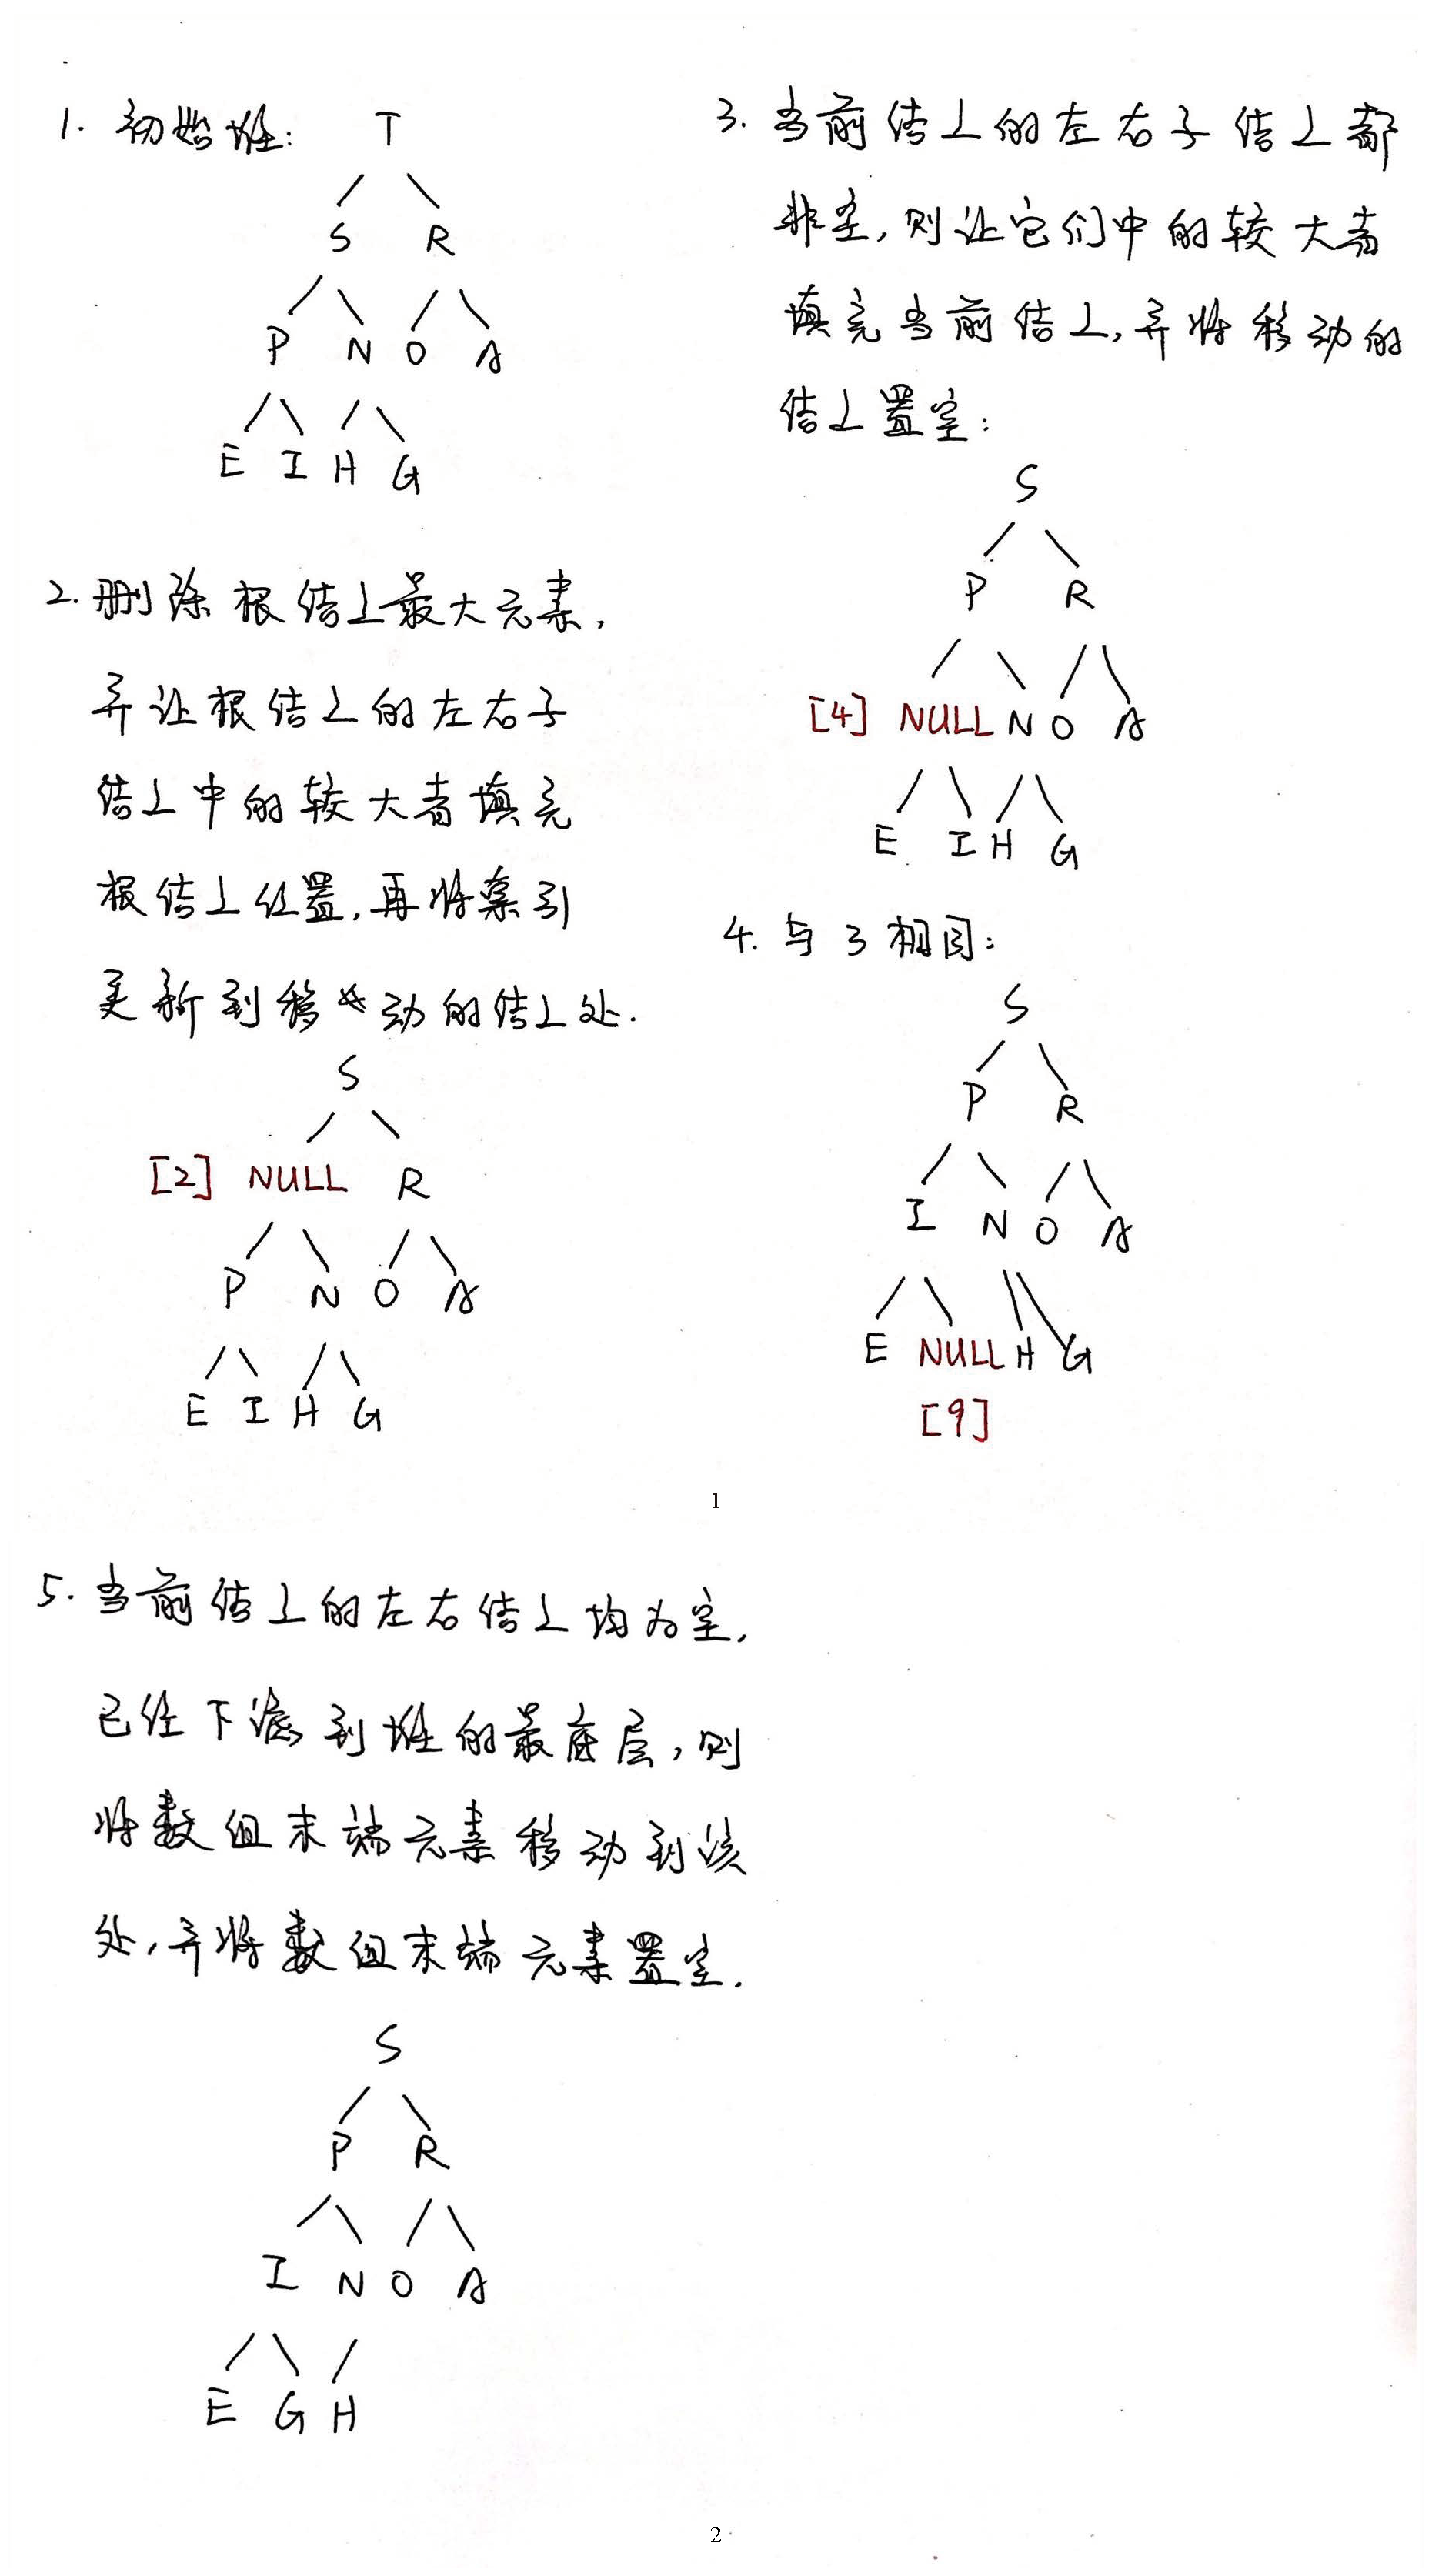 1. 初始堆:
T
S R
P N O A
E I H G
2. 删除根结点最大元素,
并让根结点的左右子
结点中的较大者填充
根结点位置,再将索引
更新到移动的结点处.
S
[2] NULL R
P N O A
E I H G
3. 当前结点的左右子结点都
非空,则让它们中的较大者
填充当前结点,并将移动的
结点置空:
S
P R
[4] NULL N O A
E I H G
4. 与3相同:
S
P R
I N O A
E NULL H G
[9]
1
5. 当前结点的左右结点均为空,
已经下滤到堆的最底层,则
将数组末端元素移动到该
处,并将数组末端元素置空.
S
P R
I N O A
E G H
2